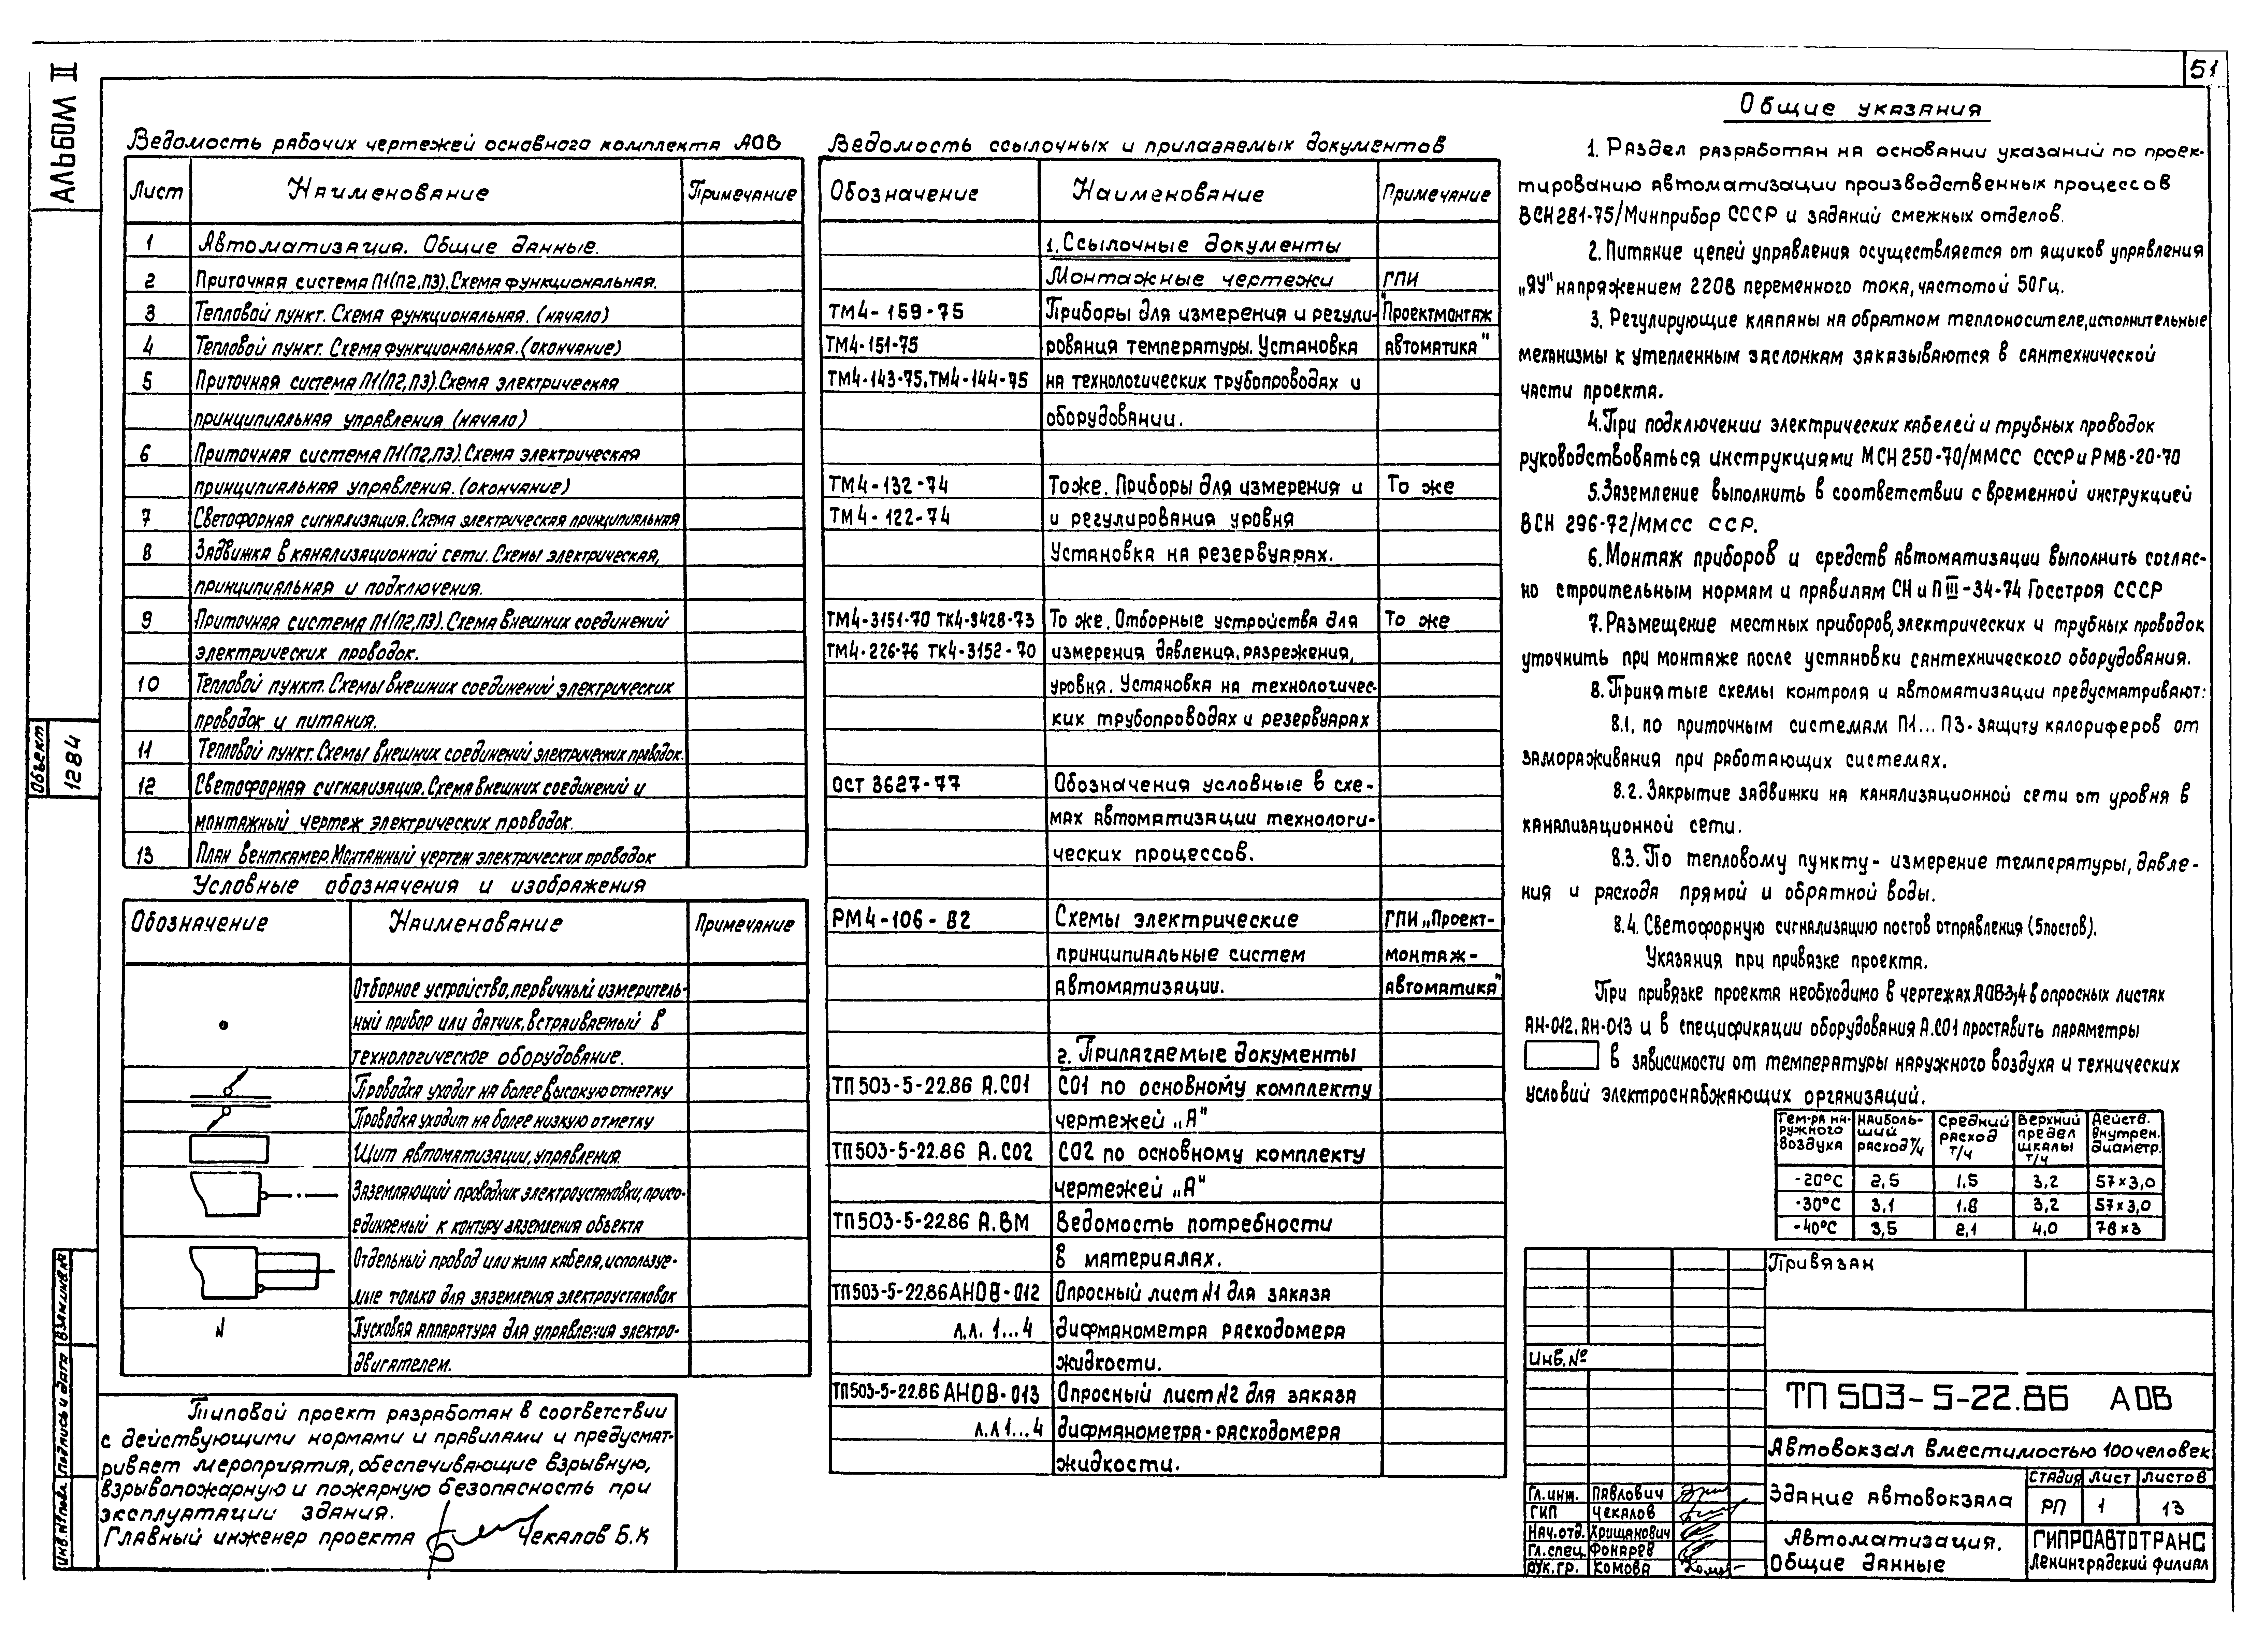 51
Альбом II
Объект
1284
Взам.инв.№
Подпись и дата
Инв.№ подл.
Ведомость рабочих чертежей основного комплекта АОВ
Лист Наименование Примечание
1 Автоматизация. Общие данные.
2 Приточная система П1(П2,П3). Схема функциональная.
3 Тепловой пункт. Схема функциональная. (начало)
4 Тепловой пункт. Схема функциональная. (окончание)
5 Приточная система П1(П2,П3). Схема электрическая
принципиальная управления (начало)
6 Приточная система П1(П2,П3). Схема электрическая
принципиальная управления. (окончание)
7 Светофорная сигнализация. Схема электрическая принципиальная
8 Задвижка в канализационной сети. Схемы электрическая,
принципиальная и подключения.
9 Приточная система П1(П2,П3). Схема внешних соединений
электрических проводок.
10 Тепловой пункт. Схемы внешних соединений электрических
проводок и питания.
11 Тепловой пункт. Схемы внешних соединений электрических проводок.
12 Светофорная сигнализация. Схема внешних соединений и
монтажный чертеж электрических проводок.
13 План венткамер. Монтажный чертеж электрических проводок
Условные обозначения и изображения
Обозначение Наименование Примечание
Отборное устройство, первичный измеритель-
ный прибор или датчик, встраиваемый в
технологическое оборудование.
Проводка уходит на более высокую отметку
Проводка уходит на более низкую отметку
Щит автоматизации, управления.
Заземляющий проводник электроустановки, присо-
единяемый к контуру заземления объекта
Отдельный провод или жила кабеля, используе-
мые только для заземления электроустановок
N Пусковая аппаратура для управления электро-
двигателем.
Типовой проект разработан в соответствии
с действующими нормами и правилами и предусмат-
ривает мероприятия, обеспечивающие взрывную,
взрывопожарную и пожарную безопасность при
эксплуатации здания.
Главный инженер проекта Чекалов Б.К
Ведомость ссылочных и прилагаемых документов
Обозначение Наименование Примечание
1. Ссылочные документы
Монтажные чертежи ГПИ
ТМ4-159-75 Приборы для измерения и регули- "Проектмонтаж
ТМ4-151-75 рования температуры. Установка автоматика"
ТМ4-143-75, ТМ4-144-75 на технологических трубопроводах и
оборудовании.
ТМ4-132-74 То же. Приборы для измерения и То же
ТМ4-122-74 и регулирования уровня
Установка на резервуарах.
ТМ4-3151-70 ТК4-3428-73 То же. Отборные устройства для То же
ТМ4-226-76 ТК4-3152-70 измерения давления, разрежения,
уровня. Установка на технологичес-
ких трубопроводах и резервуарах
ОСТ 3627-77 Обозначения условные в схе-
мах автоматизации технологи-
ческих процессов.
РМ4-106-82 Схемы электрические ГПИ „Проект-
принципиальные систем монтаж-
автоматизации. автоматика"
2. Прилагаемые документы
ТП 503-5-22.86 А.СО1 СО1 по основному комплекту
чертежей „А"
ТП 503-5-22.86 А.СО2 СО2 по основному комплекту
чертежей „А"
ТП 503-5-22.86 А.ВМ Ведомость потребности
в материалах.
ТП503-5-22.86 АНОВ-012 Опросный лист №1 для заказа
л.л. 1...4 дифманометра расходомера
жидкости.
ТП503-5-22.86 АНОВ-013 Опросный лист №2 для заказа
л.л 1...4 дифманометра-расходомера
жидкости.
Общие указания
1. Раздел разработан на основании указаний по проек-
тированию автоматизации производственных процессов
ВСН281-75/Минприбор СССР и заданий смежных отделов.
2. Питание цепей управления осуществляется от ящиков управления
„ЯУ" напряжением 220В переменного тока, частотой 50Гц.
3. Регулирующие клапаны на обратном теплоносителе, исполнительные
механизмы к утепленным заслонкам заказываются в сантехнической
части проекта.
4. При подключении электрических кабелей и трубных проводок
руководствоваться инструкциями МСН 250-70/ММСС СССР и РМВ-20-70
5. Заземление выполнить в соответствии с временной инструкцией
ВСН 296-72/ММСС ССР.
6. Монтаж приборов и средств автоматизации выполнить соглас-
но строительным нормам и правилам СН и П III-34-74 Госстроя СССР
7. Размещение местных приборов, электрических и трубных проводок
уточнить при монтаже после установки сантехнического оборудования.
8. Принятые схемы контроля и автоматизации предусматривают:
8.1. по приточным системам П1...П3-защиту калориферов от
замораживания при работающих системах.
8.2. Закрытие задвижки на канализационной сети от уровня в
канализационной сети.
8.3. По тепловому пункту- измерение температуры, давле-
ния и расхода прямой и обратной воды.
8.4. Светофорную сигнализацию постов отправления (5постов).
Указания при привязке проекта.
При привязке проекта необходимо в чертежах АОВ3,4 в опросных листах
АН-012, АН-013 и в спецификации оборудования А.СО1 проставить параметры
в зависимости от температуры наружного воздуха и технических
условий электроснабжающих организаций.
Тем-ра на-ружного воздуха Наиболь-ший расход т/ч Средний расход т/ч Верхний предел шкалы т/ч Действ. внутрен. диаметр.
-20°С 2,5 1,5 3,2 57×3,0
-30°С 3,1 1.8 3,2 57×3,0
-40°С 3,5 2,1 4,0 76×3
Привязан
Инв.№
ТП 503-5-22.86 АОВ
Автовокзал вместимостью 100 человек
Гл.инж. Павлович
ГИП Чекалов
Нач.отд. Хрищанович
Гл.спец. Фонарев
Рук.гр. Комова
Здание автовокзала
Стадия Лист Листов
РП 1 13
Автоматизация.
Общие данные
ГИПРОАВТОТРАНС
Ленинградский филиал